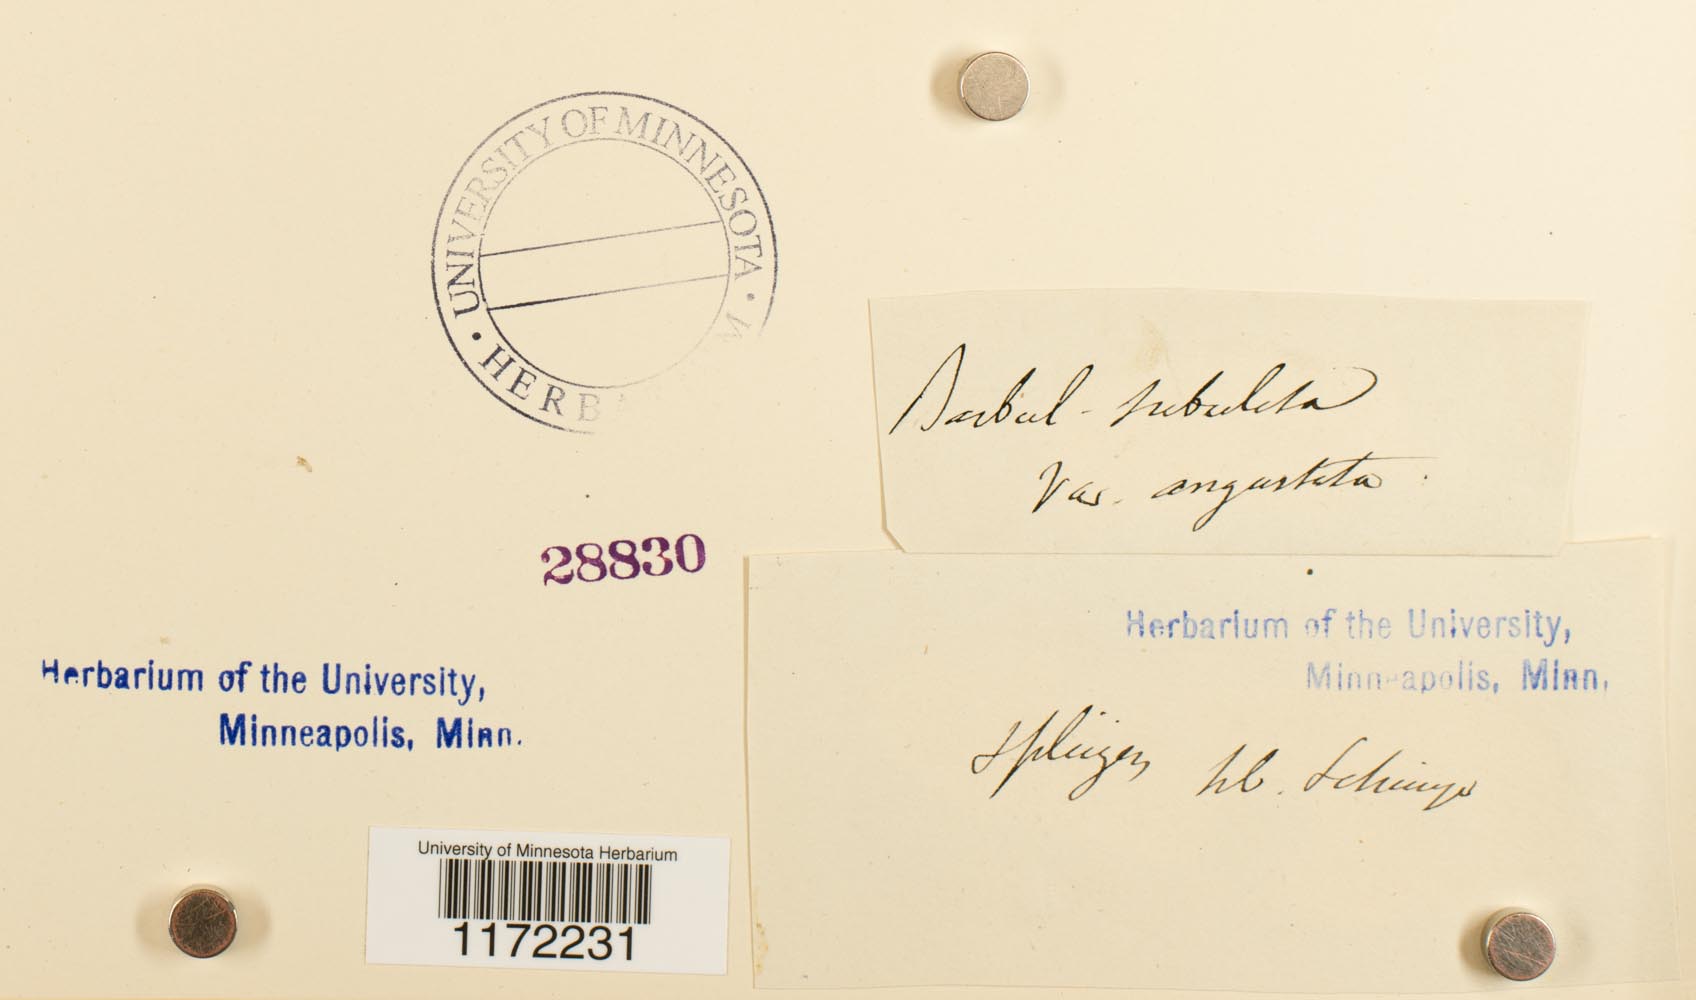 UNIVERSITY OF MINNESOTA
HERB
Barbul- subulata
Var. angustata.
28830
Herbarium of the University,
Minneapolis, Minn.
Herbarium of the University,
Minneapolis, Minn.
Splügen hb.
University of Minnesota Herbarium
1172231